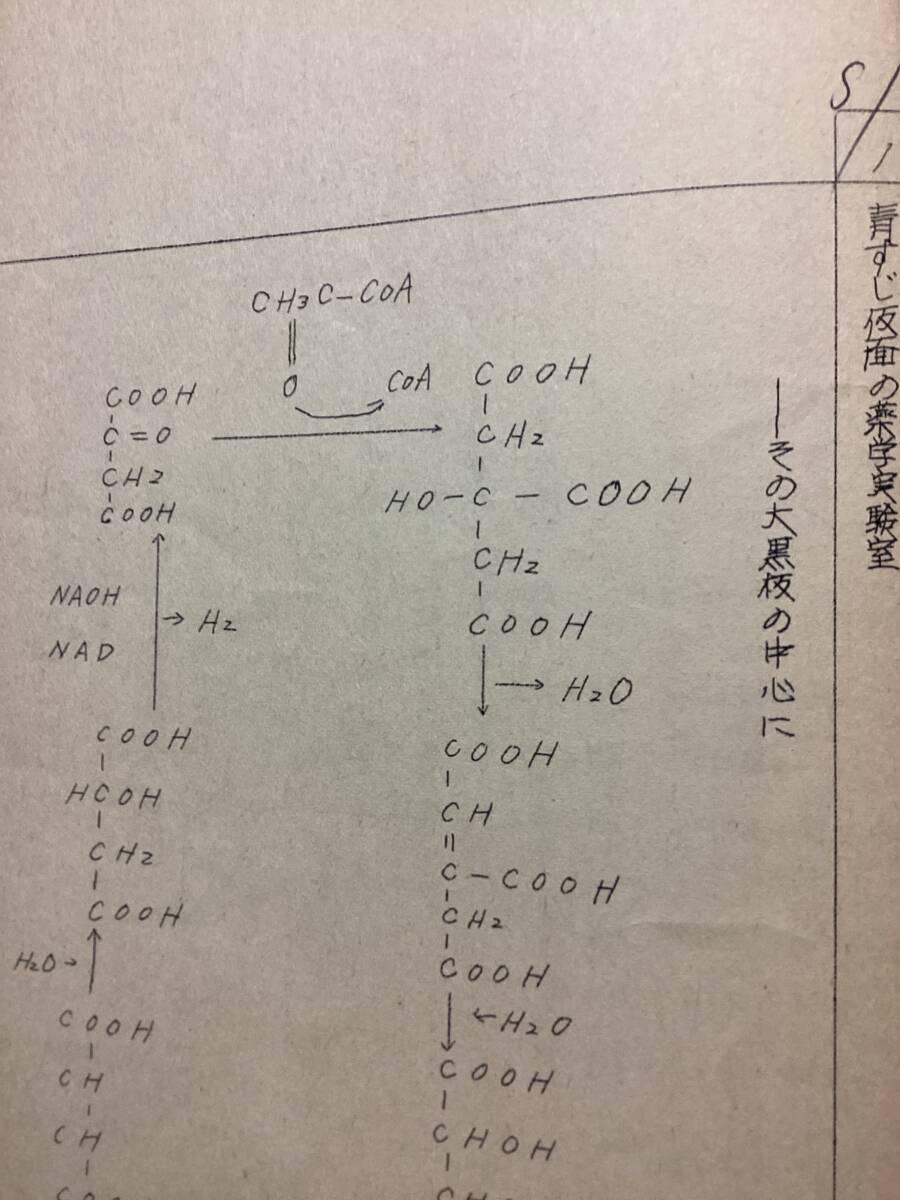 S
1
青すじ仮面の薬学実験室
──その大黒板の中心に
CH3C-CoA
O
CoA
COOH
C=O
CH2
COOH
NAOH
NAD
H2
COOH
HCOH
CH2
COOH
H2O
COOH
CH
CH
COOH
CH2
HO-C-COOH
CH2
COOH
H2O
COOH
CH
C-COOH
CH2
COOH
H2O
COOH
CHOH